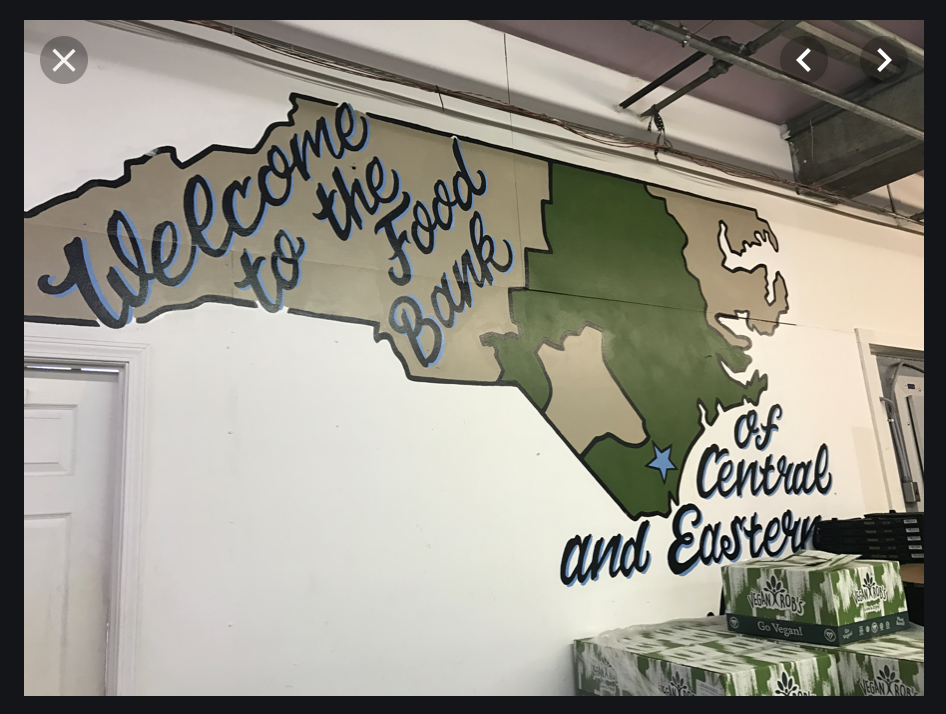 Welcome
to the
Food
Bank
of
Central
and Eastern
VEGAN ROB'S
VEGAN ROB'S
Go Vegan!
VEGAN ROB'S
VEGAN ROB'S